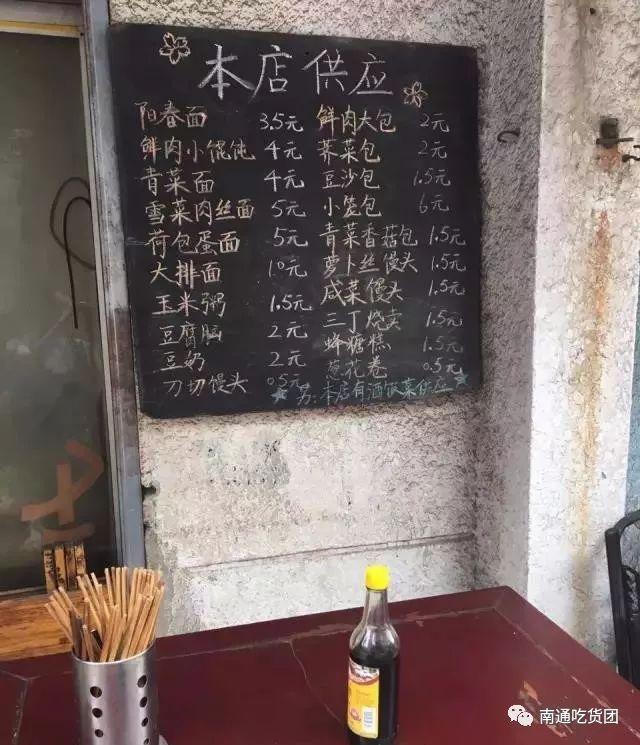 本店供应
阳春面 3.5元
鲜肉小馄饨 4元
青菜面 4元
雪菜肉丝面 5元
荷包蛋面 5元
大排面 10元
玉米粥 1.5元
豆腐脑 2元
豆奶 2元
刀切馒头 0.5元
鲜肉大包 2元
荠菜包 2元
豆沙包 1.5元
小笼包 6元
青菜香菇包 1.5元
萝卜丝馒头 1.5元
咸菜馒头 1.5元
三丁烧卖 1.5元
蜂糖糕 1.5元
葱花卷 0.5元
另:本店有酒饭菜供应
南通吃货团